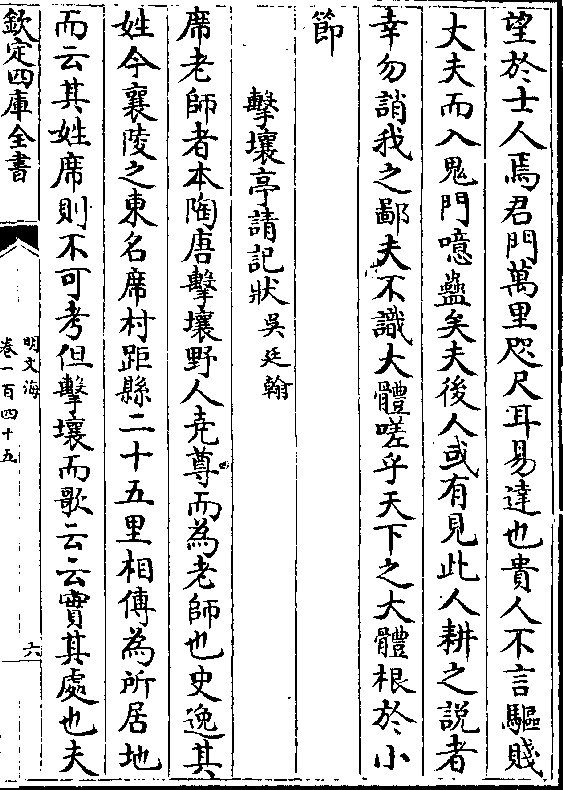 望於士人焉君門萬里咫尺耳易達也貴人不言驅賤
丈夫而入鬼門噫蠱矣夫後人或有見此人耕之說者
幸勿誚我之鄙夫不識大體嗟乎天下之大體根於小
節
擊壤亭請記狀 吳廷翰
席老師者本陶唐擊壤野人堯尊而為老師也史逸其
姓今襄陵之東名席村距縣二十五里相傳為所居地
而云其姓席則不可考但擊壤而歌云云實其處也夫
欽定四庫全書
明文海
卷一百四十五
六